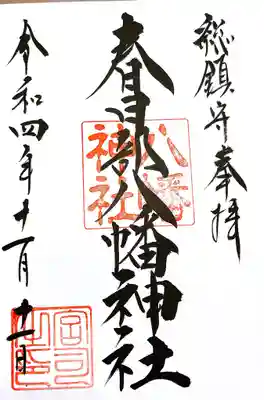 総鎮守奉拝
春日部八幡神社
八幡神社
令和四年十一月十一日
宮司之印